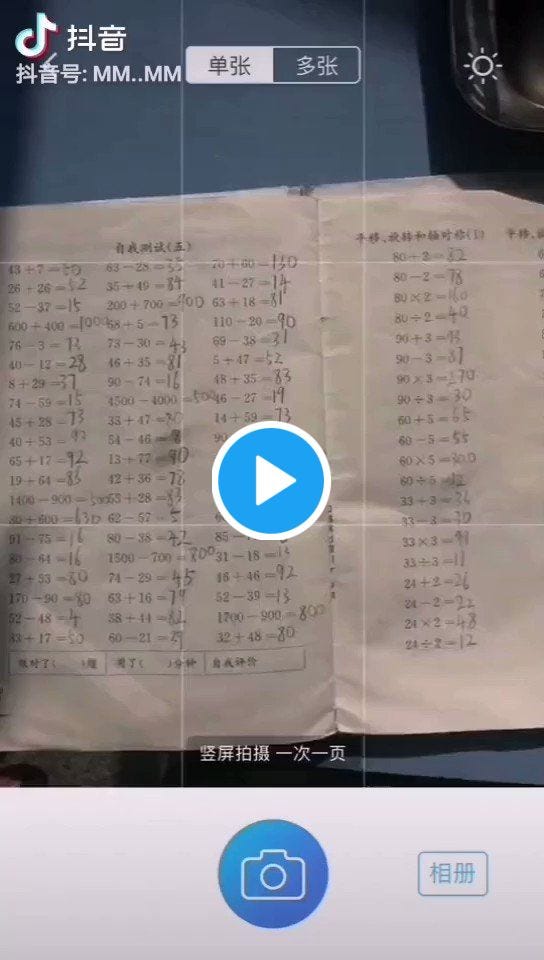 抖音
抖音号: MM..MM
单张
多张
自我测试(五)
43+7=50
26+26=52
52-37=15
600+400=1000
76-3=73
40-12=28
8+29=37
74-59=15
45+28=73
40+53=93
65+17=92
19+64=83
1400-900=500
30+600=630
91-75=16
80-64=16
27+53=80
170-90=80
52-48=4
33+17=50
63-28=35
35+49=84
200+700=900
68+5=73
73-30=43
46+35=81
90-74=16
4500-4000=500
33+47=80
54-46=8
13+77=90
42+36=78
53+28=83
62-57=5
80-38=42
1500-700=800
74-29=45
63+16=79
38+44=82
60-21=29
70+60=130
41-27=14
63+18=81
110-20=90
69-38=31
5+47=52
48+35=83
46-27=19
14+59=73
31-18=13
46+46=92
52-39=13
1700-900=800
32+48=80
限时了( )题 用了( )分钟 自我评价
平移、旋转和轴对称(1)
80+2=82
80-2=78
80×2=160
80÷2=40
90+3=93
90-3=87
90×3=270
90÷3=30
60+5=65
60-5=55
60×5=300
60÷5=12
33+3=36
33-3=30
33×3=99
33÷3=11
24+2=26
24-2=22
24×2=48
24÷2=12
竖屏拍摄 一次一页
相册